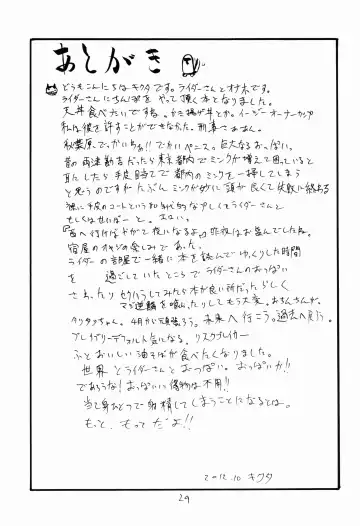 あとがき
どうもこんにちはキクタです。ライダーさんとオナネです。
ライダーさんにちんしゃぶをやって頂く本となりました。
天丼食べたいですね。かき揚げ丼とか。イージーオーナーカップ
私は彼を許すことができなかった。刑事さぁぁん。
秋葉原でっかいちぃ!!でかいペース。巨大なるおっぱい。
昔の両津勘吉だったら東京都内でミンクが増えて困っていると
耳にしたら手皮目当てで都内のミンクを一掃してしまう
と思うのですがたぶんミンクが妙に頭が良くて失敗に終わる
『西へ行けばやがて夜になるよ』昨夜はお楽しみでしたね。
宿屋のオヤジの楽しみであった。
ライダーの部屋で一緒に本を読んでゆっくりした時間
を 過ごしていたところでライダーさんのおっぱい
さわったりモミモミしてみたら本が良い所だったらしく
マジ逆鱗を喰らったりしてもう大変。
4月から頑張ろう。未来へ行こう。過去へ戻ろう。
ブレイブリーデフォルト気になる。リスクブレイカー
ふとおいしい油そばが食べたくなりました。
世界とライダーさんとおっぱい。おっぱいか!!
であろうな!おっぱいに偽物は不用!!
当て身ひとつで射精してしまうことになるとは。
もっと、もっとだよ!!
2012.10 キクタ
29